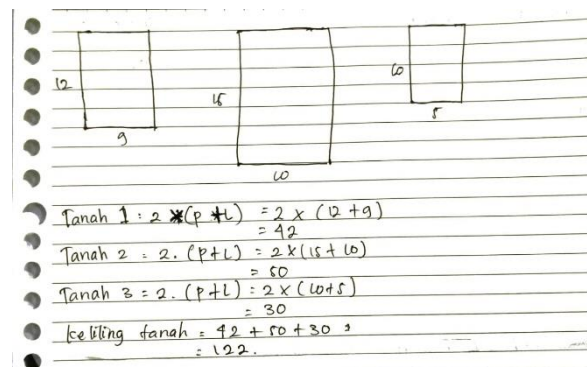 12
9
15
10
10
5
Tanah 1 : 2 x (p + l) = 2 x (12 + 9)
= 42
Tanah 2 = 2. (p+l) = 2x(15 + 10)
= 50
Tanah 3 = 2. (p+l) = 2x (10+5)
= 30
keliling tanah = 42 + 50 + 30
= 122.